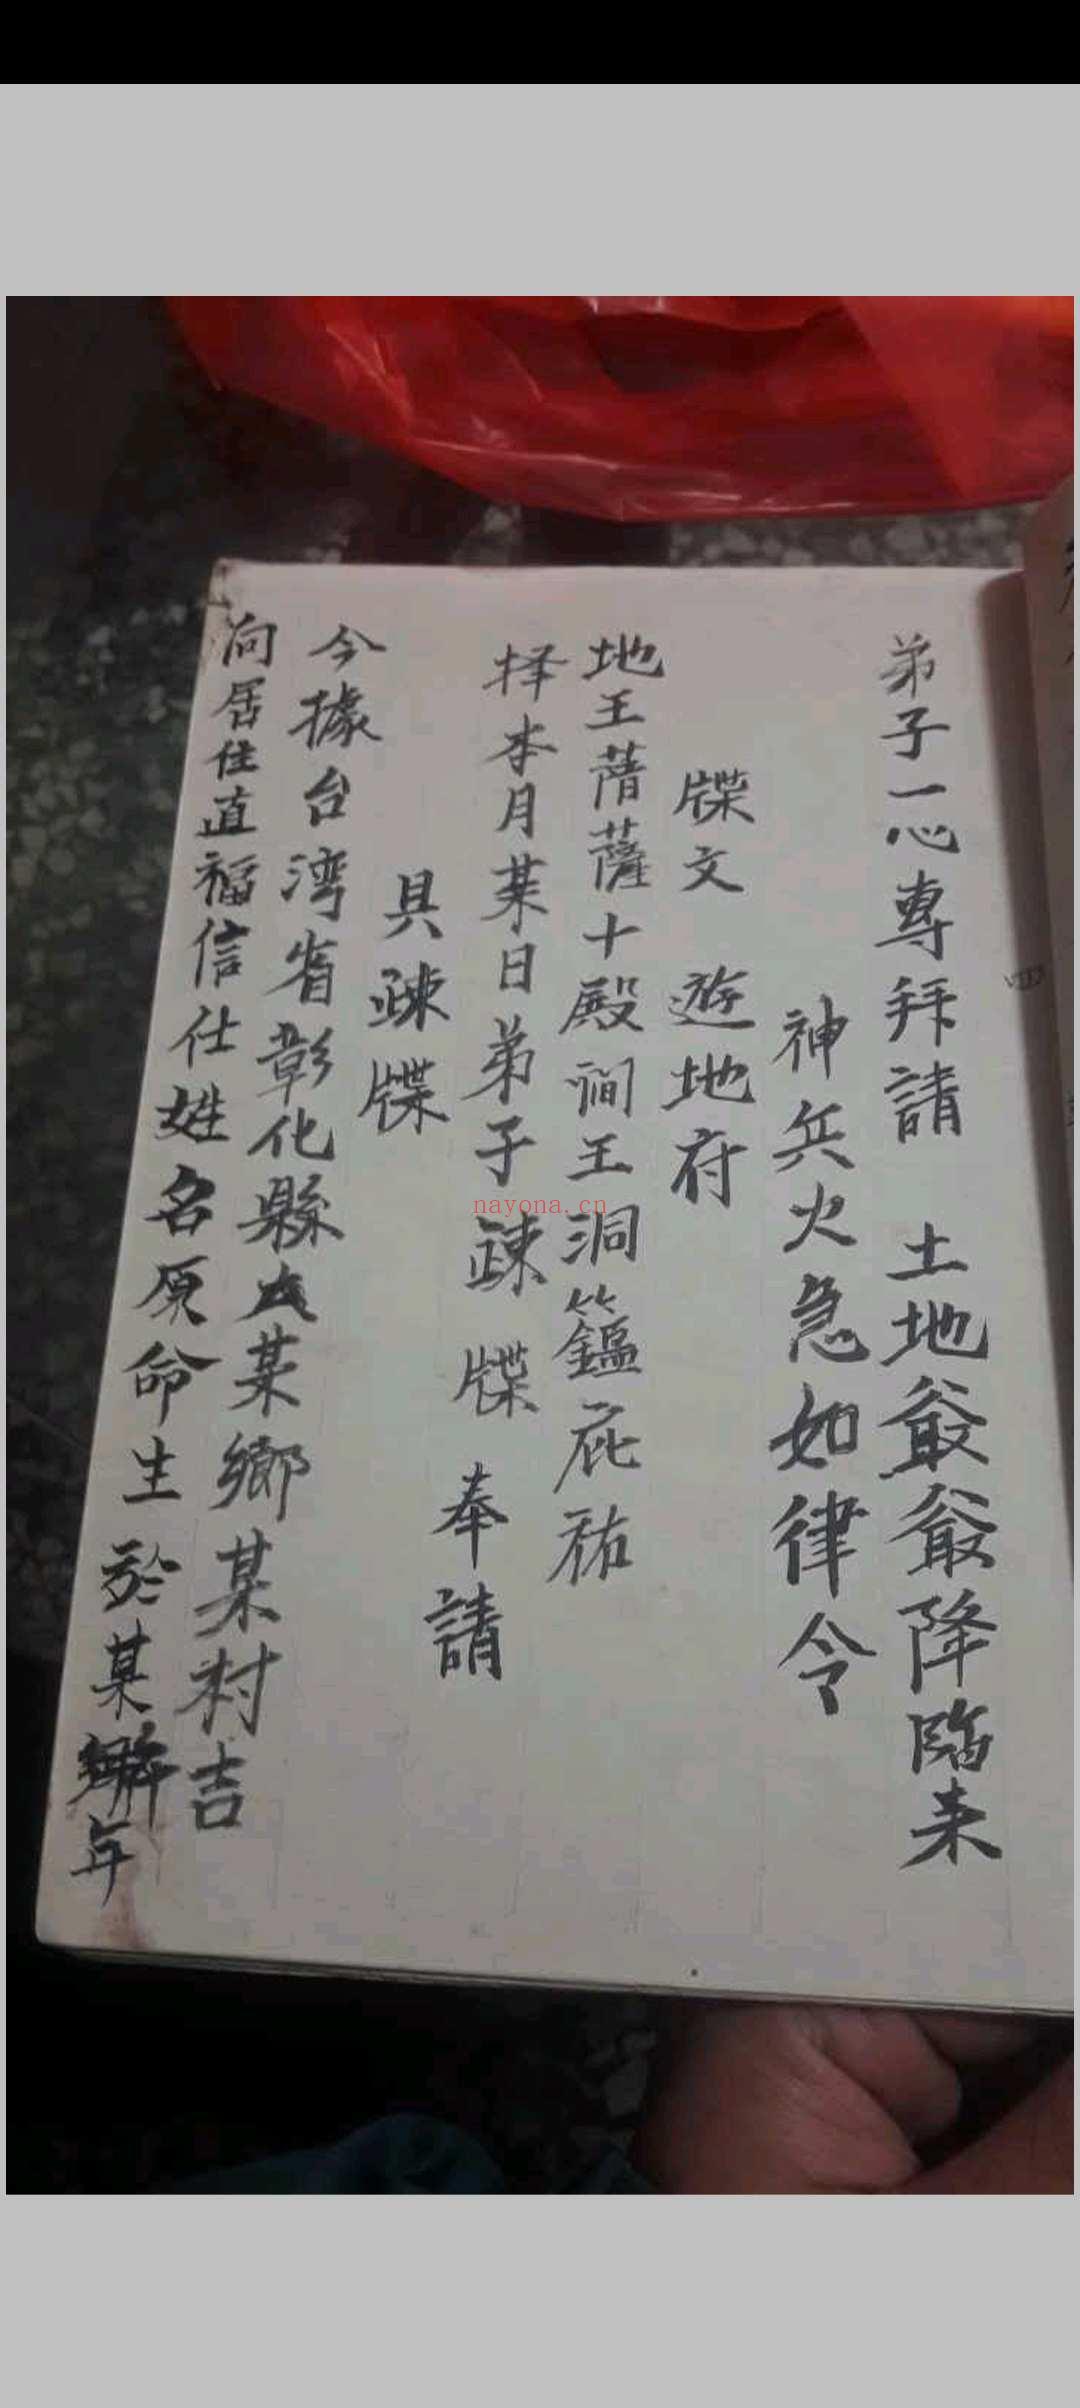 弟子一心專拜請 土地爺爺降臨来
神兵火急如律令
牒文 遊地府
地王菩薩十殿阎王洞鑑庇祐
择本月某日弟子疎牒奉請
具疎牒
今據台湾省彰化縣某鄉某村吉
向居住直福信仕姓名原命生於某年
nayona.cn